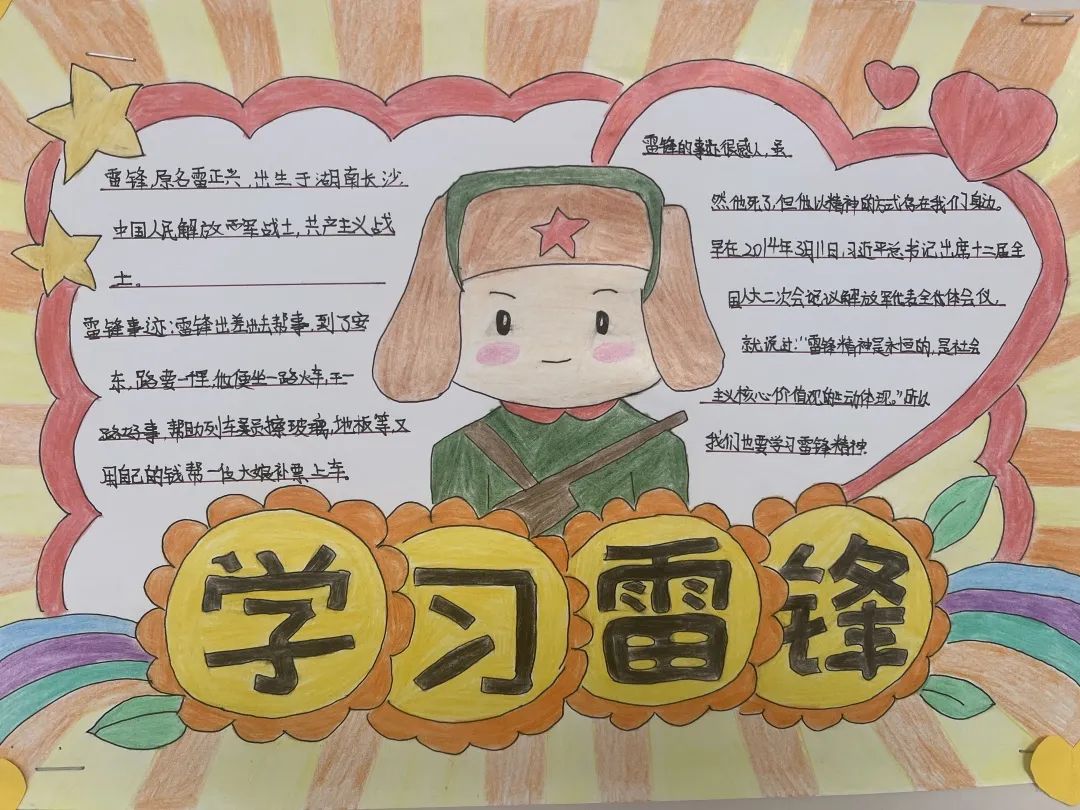 雷锋,原名雷正兴,出生于湖南长沙,
中国人民解放军战士,共产主义战
士。
雷锋事迹:雷锋出差也去帮事,到了安
东,路要一程,他便坐一路火车,干一
路好事,帮助列车员擦玻璃,地板等,又
用自己的钱帮一位大娘补票上车。
雷锋的事迹很感人,虽
然他死了,但他以精神的方式存在我们身边。
早在2014年3月11日,习近平总书记出席十二届全
国人大二次会议解放军代表全体会仪,
就说过:“雷锋精神是永恒的,是社会
主义核心价值观的生动体现。”所以
我们也要学习雷锋精神.
学习雷锋